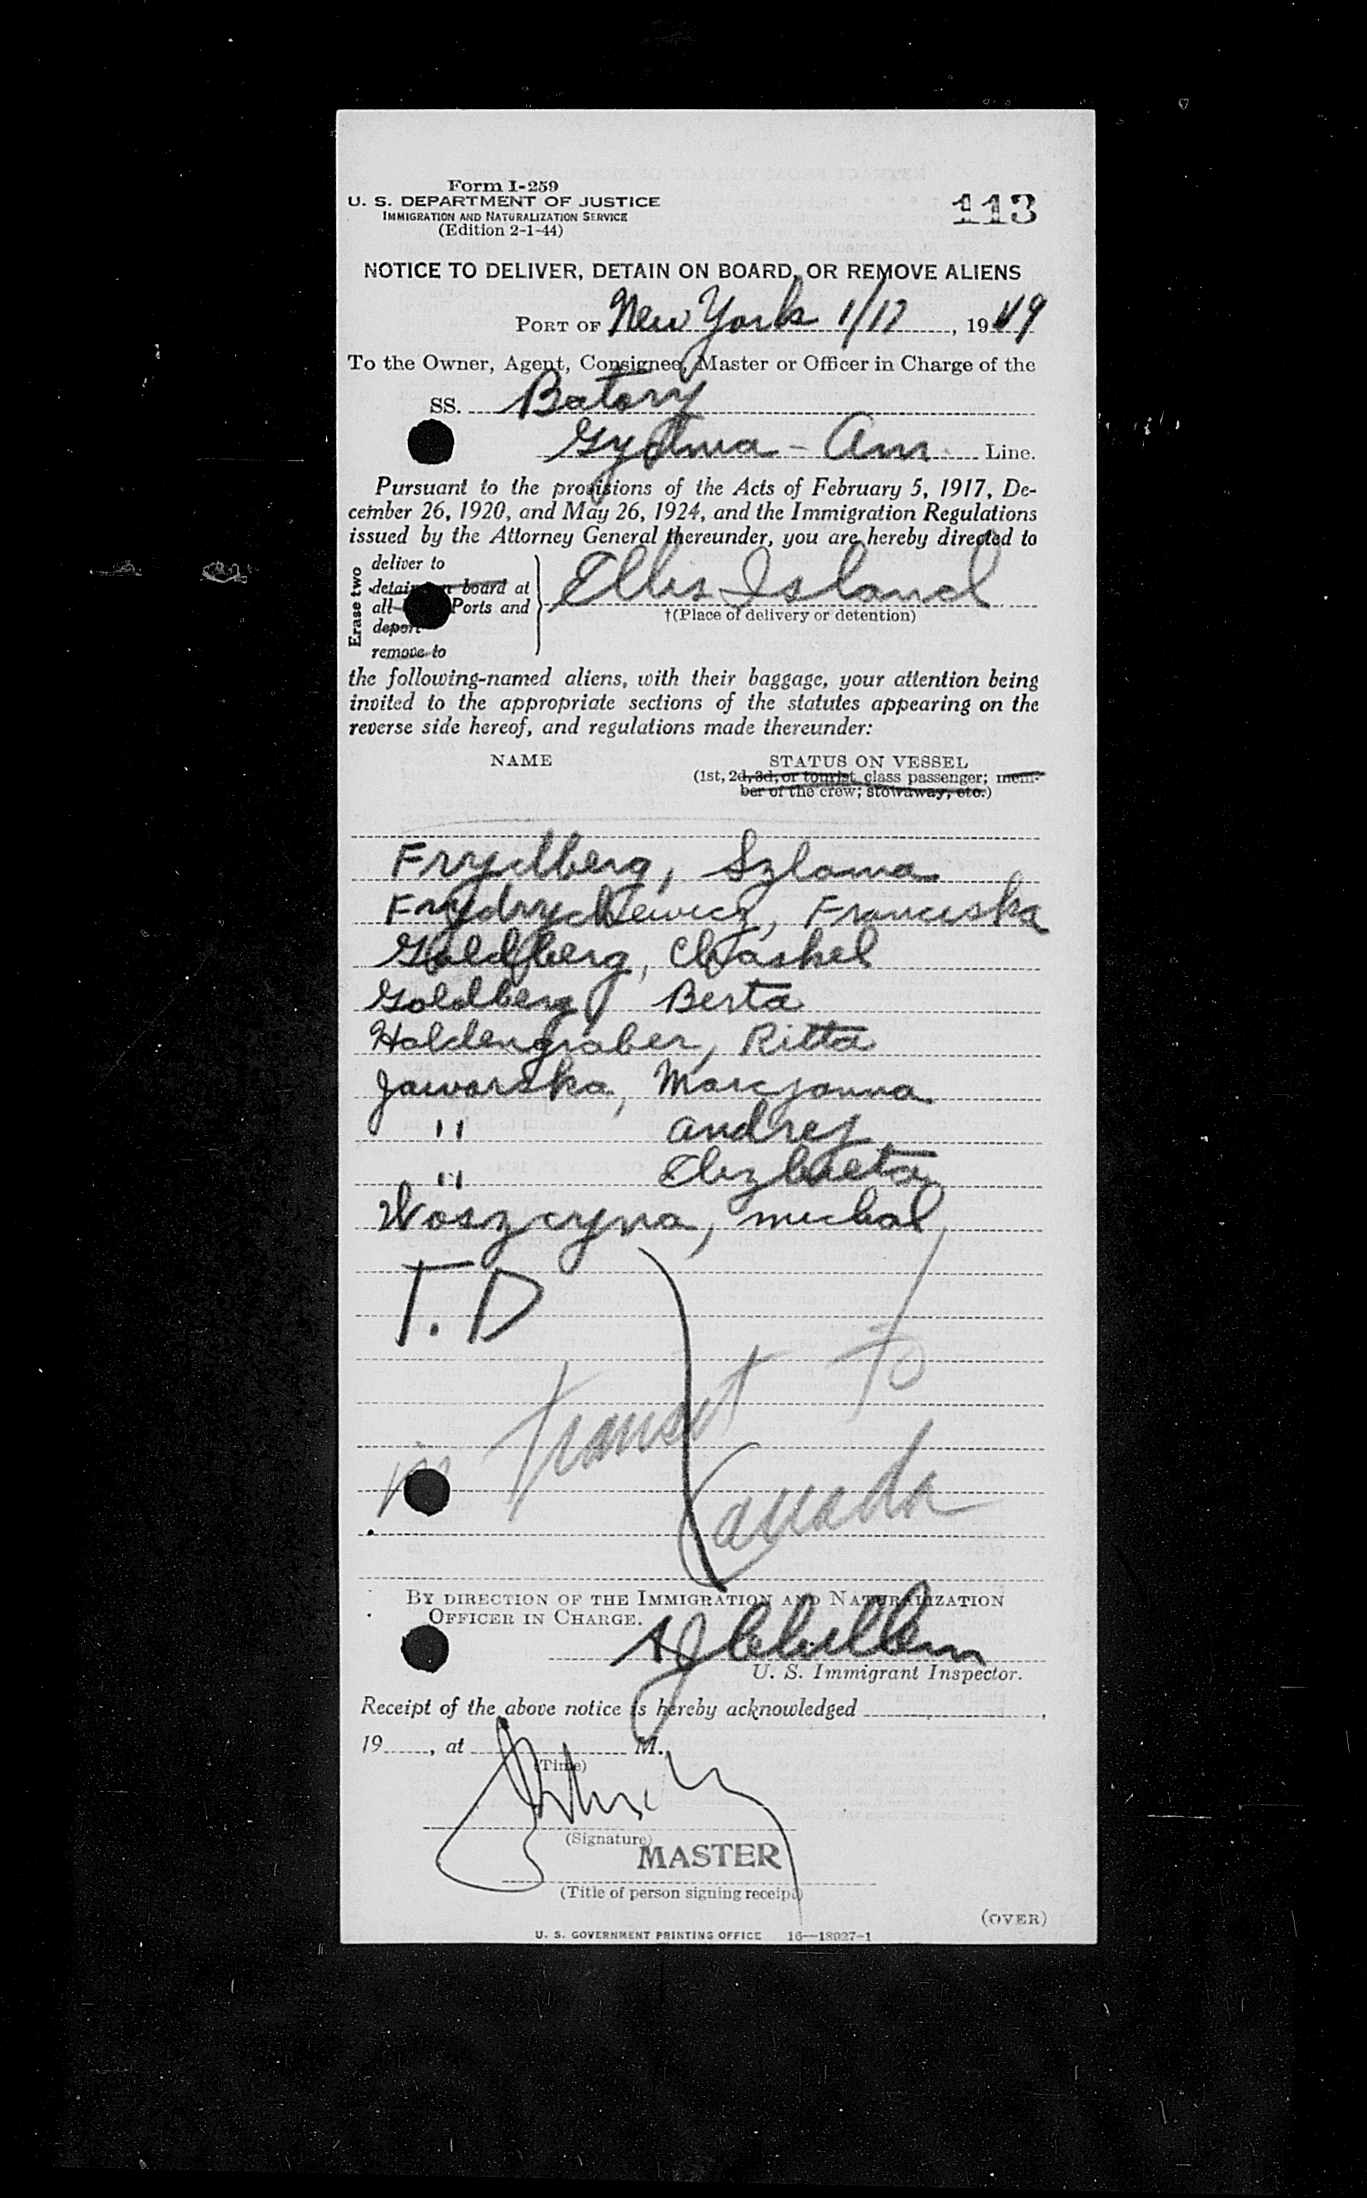 Form I-259
U. S. DEPARTMENT OF JUSTICE
IMMIGRATION AND NATURALIZATION SERVICE
(Edition 2-1-44)
113
NOTICE TO DELIVER, DETAIN ON BOARD, OR REMOVE ALIENS
PORT OF New York 1/17, 1949
To the Owner, Agent, Consignee, Master or Officer in Charge of the
SS. Batory
Gydnia - Am Line.
Pursuant to the provisions of the Acts of February 5, 1917, De-
cember 26, 1920, and May 26, 1924, and the Immigration Regulations
issued by the Attorney General thereunder, you are hereby directed to
Erase two
deliver to
detain on board at
all Ports and
deport
remove to
Ellis Island
†(Place of delivery or detention)
the following-named aliens, with their baggage, your attention being
invited to the appropriate sections of the statutes appearing on the
reverse side hereof, and regulations made thereunder:
NAME STATUS ON VESSEL
(1st, 2d, 3d, or tourist class passenger; mem-
ber of the crew; stowaway, etc.)
Frydberg, Szlama
Frydrychewicz, Franciska
Goldberg, Chaskel
Goldberg, Berta
Haldengraber, Ritta
Jaworska, Marcjanna
" Andrej
" Elizbieta
Woszczyna, Michal
T. D
in transit to
Canada
BY DIRECTION OF THE IMMIGRATION AND NATURALIZATION
OFFICER IN CHARGE.
U. S. Immigrant Inspector.
Receipt of the above notice is hereby acknowledged ,
19 , at M.
(Time)
(Signature)
MASTER
(Title of person signing receipt)
(OVER)
U. S. GOVERNMENT PRINTING OFFICE 16—18927-1